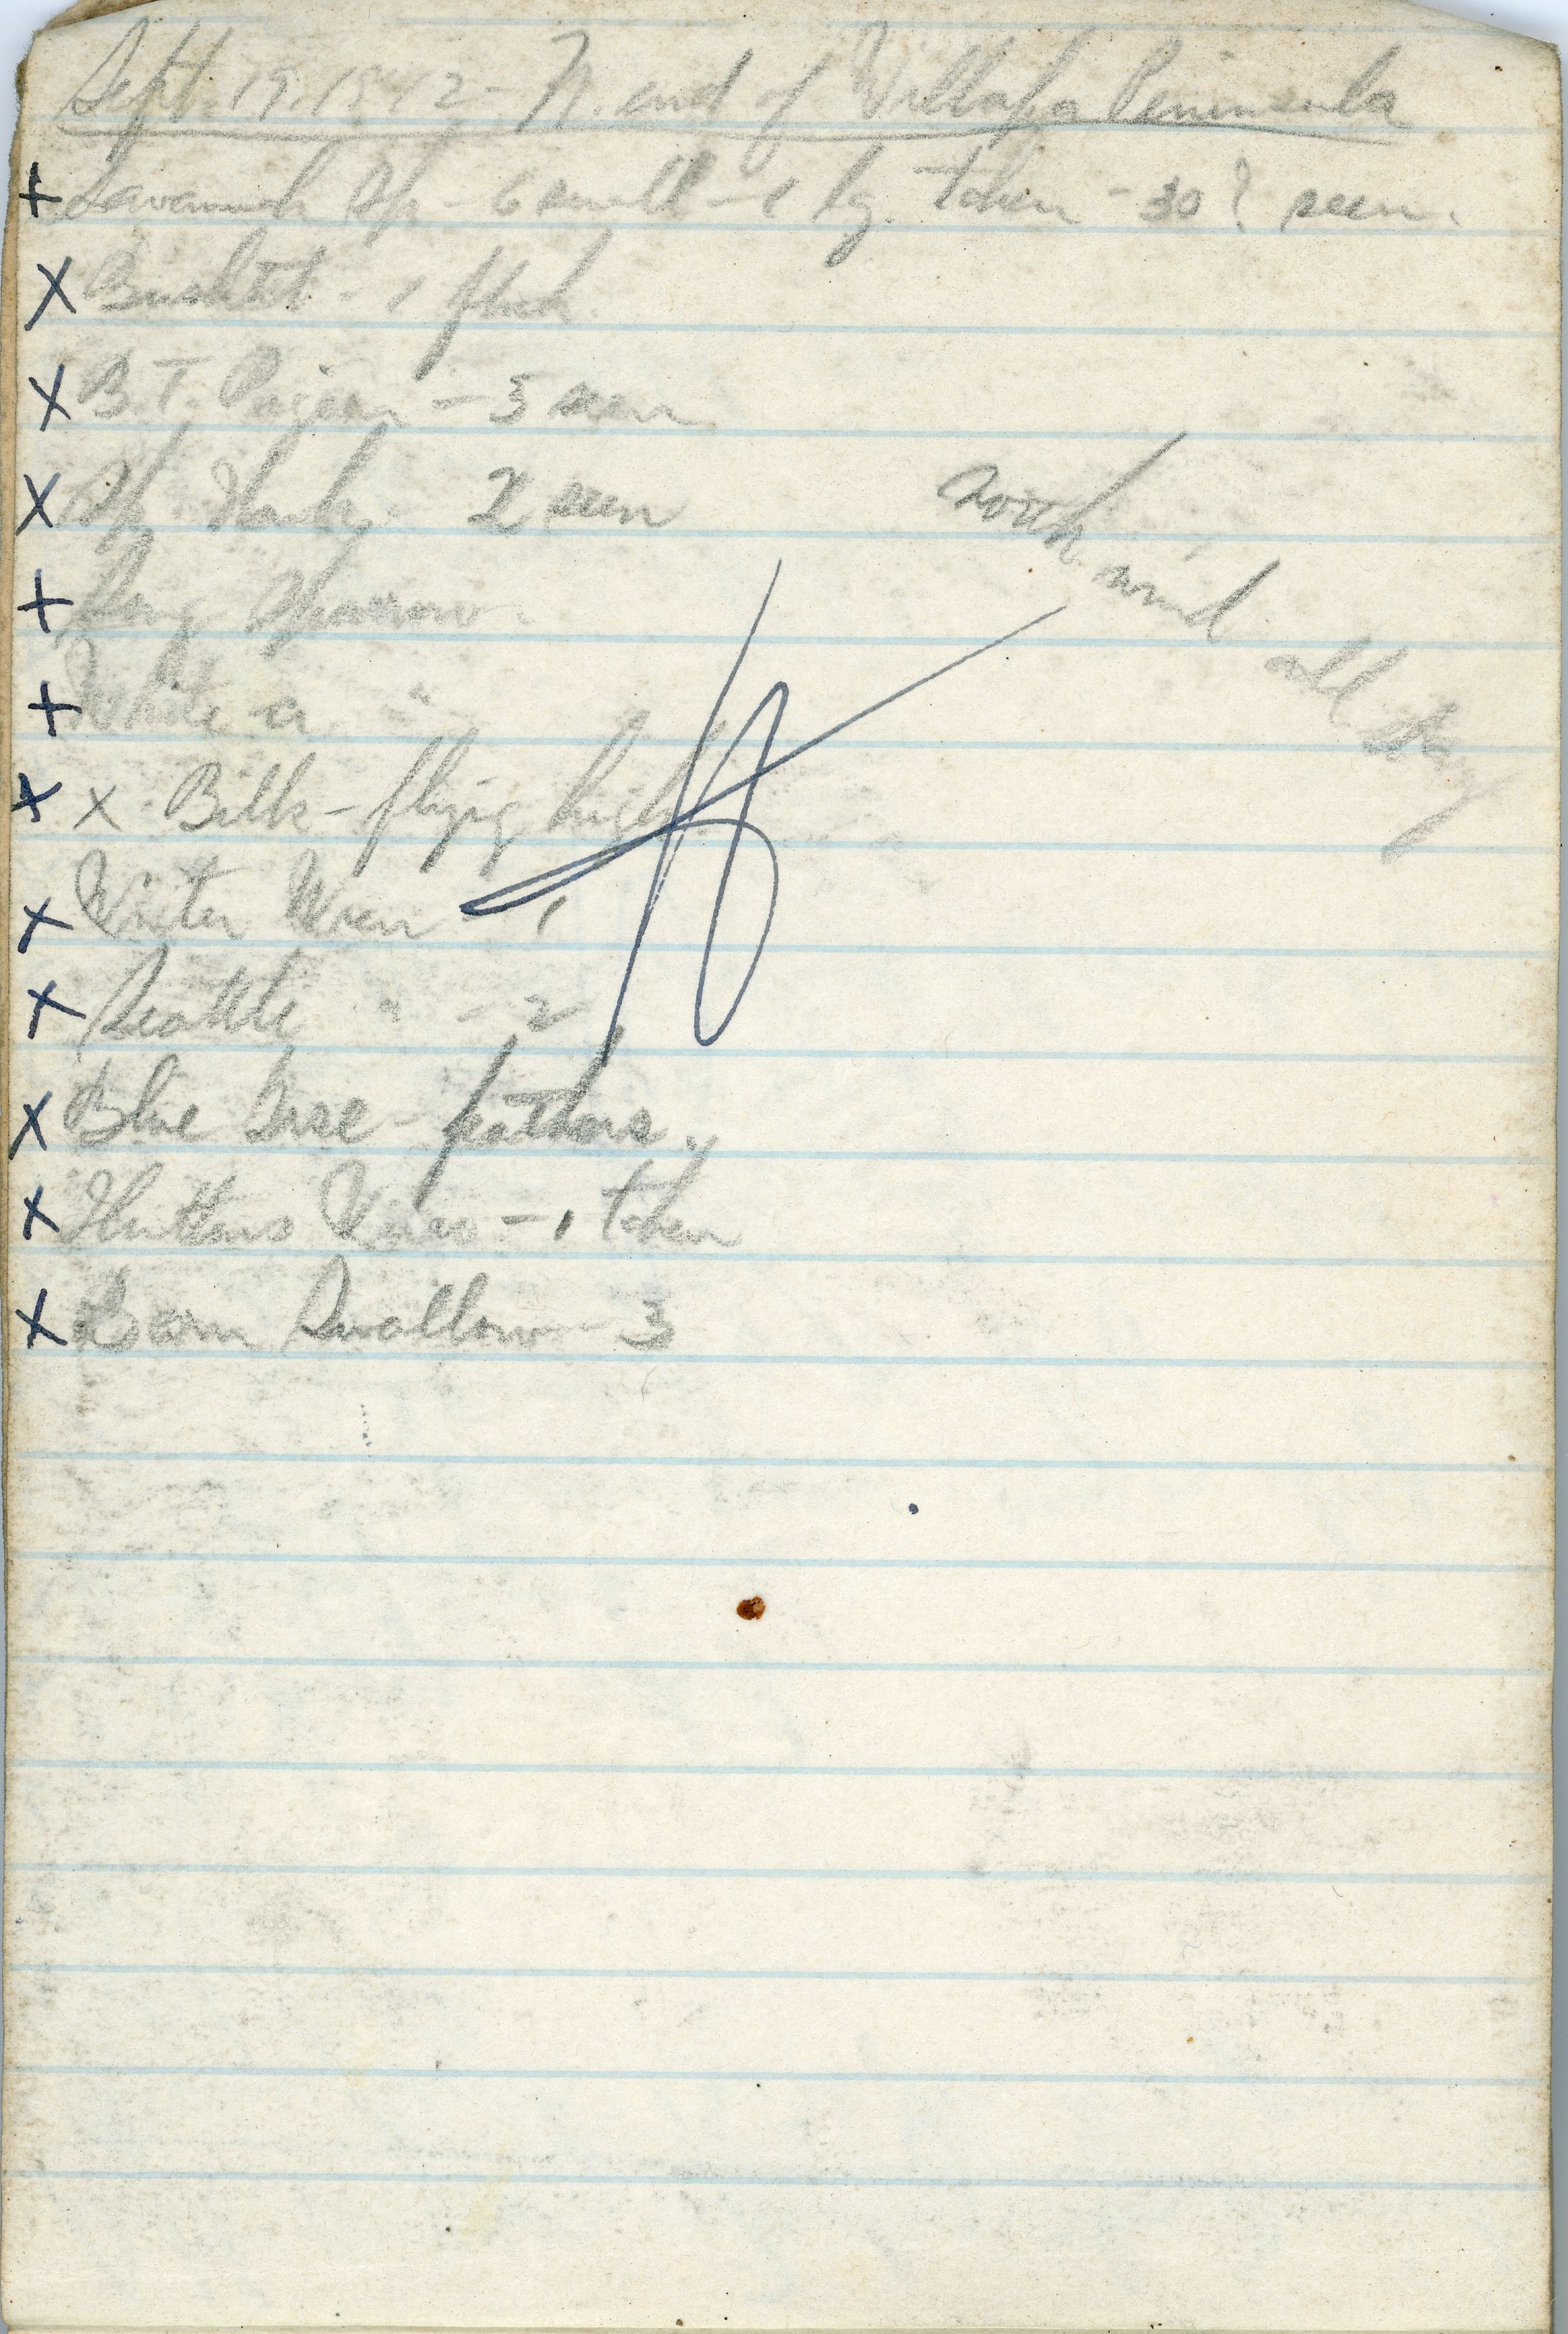 Sept. 19. 1942 - N. end of Willapa Peninsula
+ Savannah Sp. - 6 small - 1 lg. taken - 30? seen.
X Bushtit - 1 flock.
X B.T. Pigeon - 3 seen
X Sp. Hawk - 2 seen
+ Song Sparrow.
+ White cr. "
X X Bills - flying high
X Winter Wren - 1
X Seattle " - 2
X Blue Grse - feathers.
X Huttons Vireo - 1 taken
X Barn Swallow - 3
North wind all day